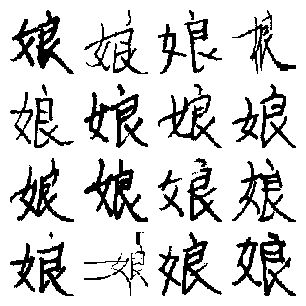 娘娘娘娘
娘娘娘娘
娘娘娘娘
娘娘娘娘